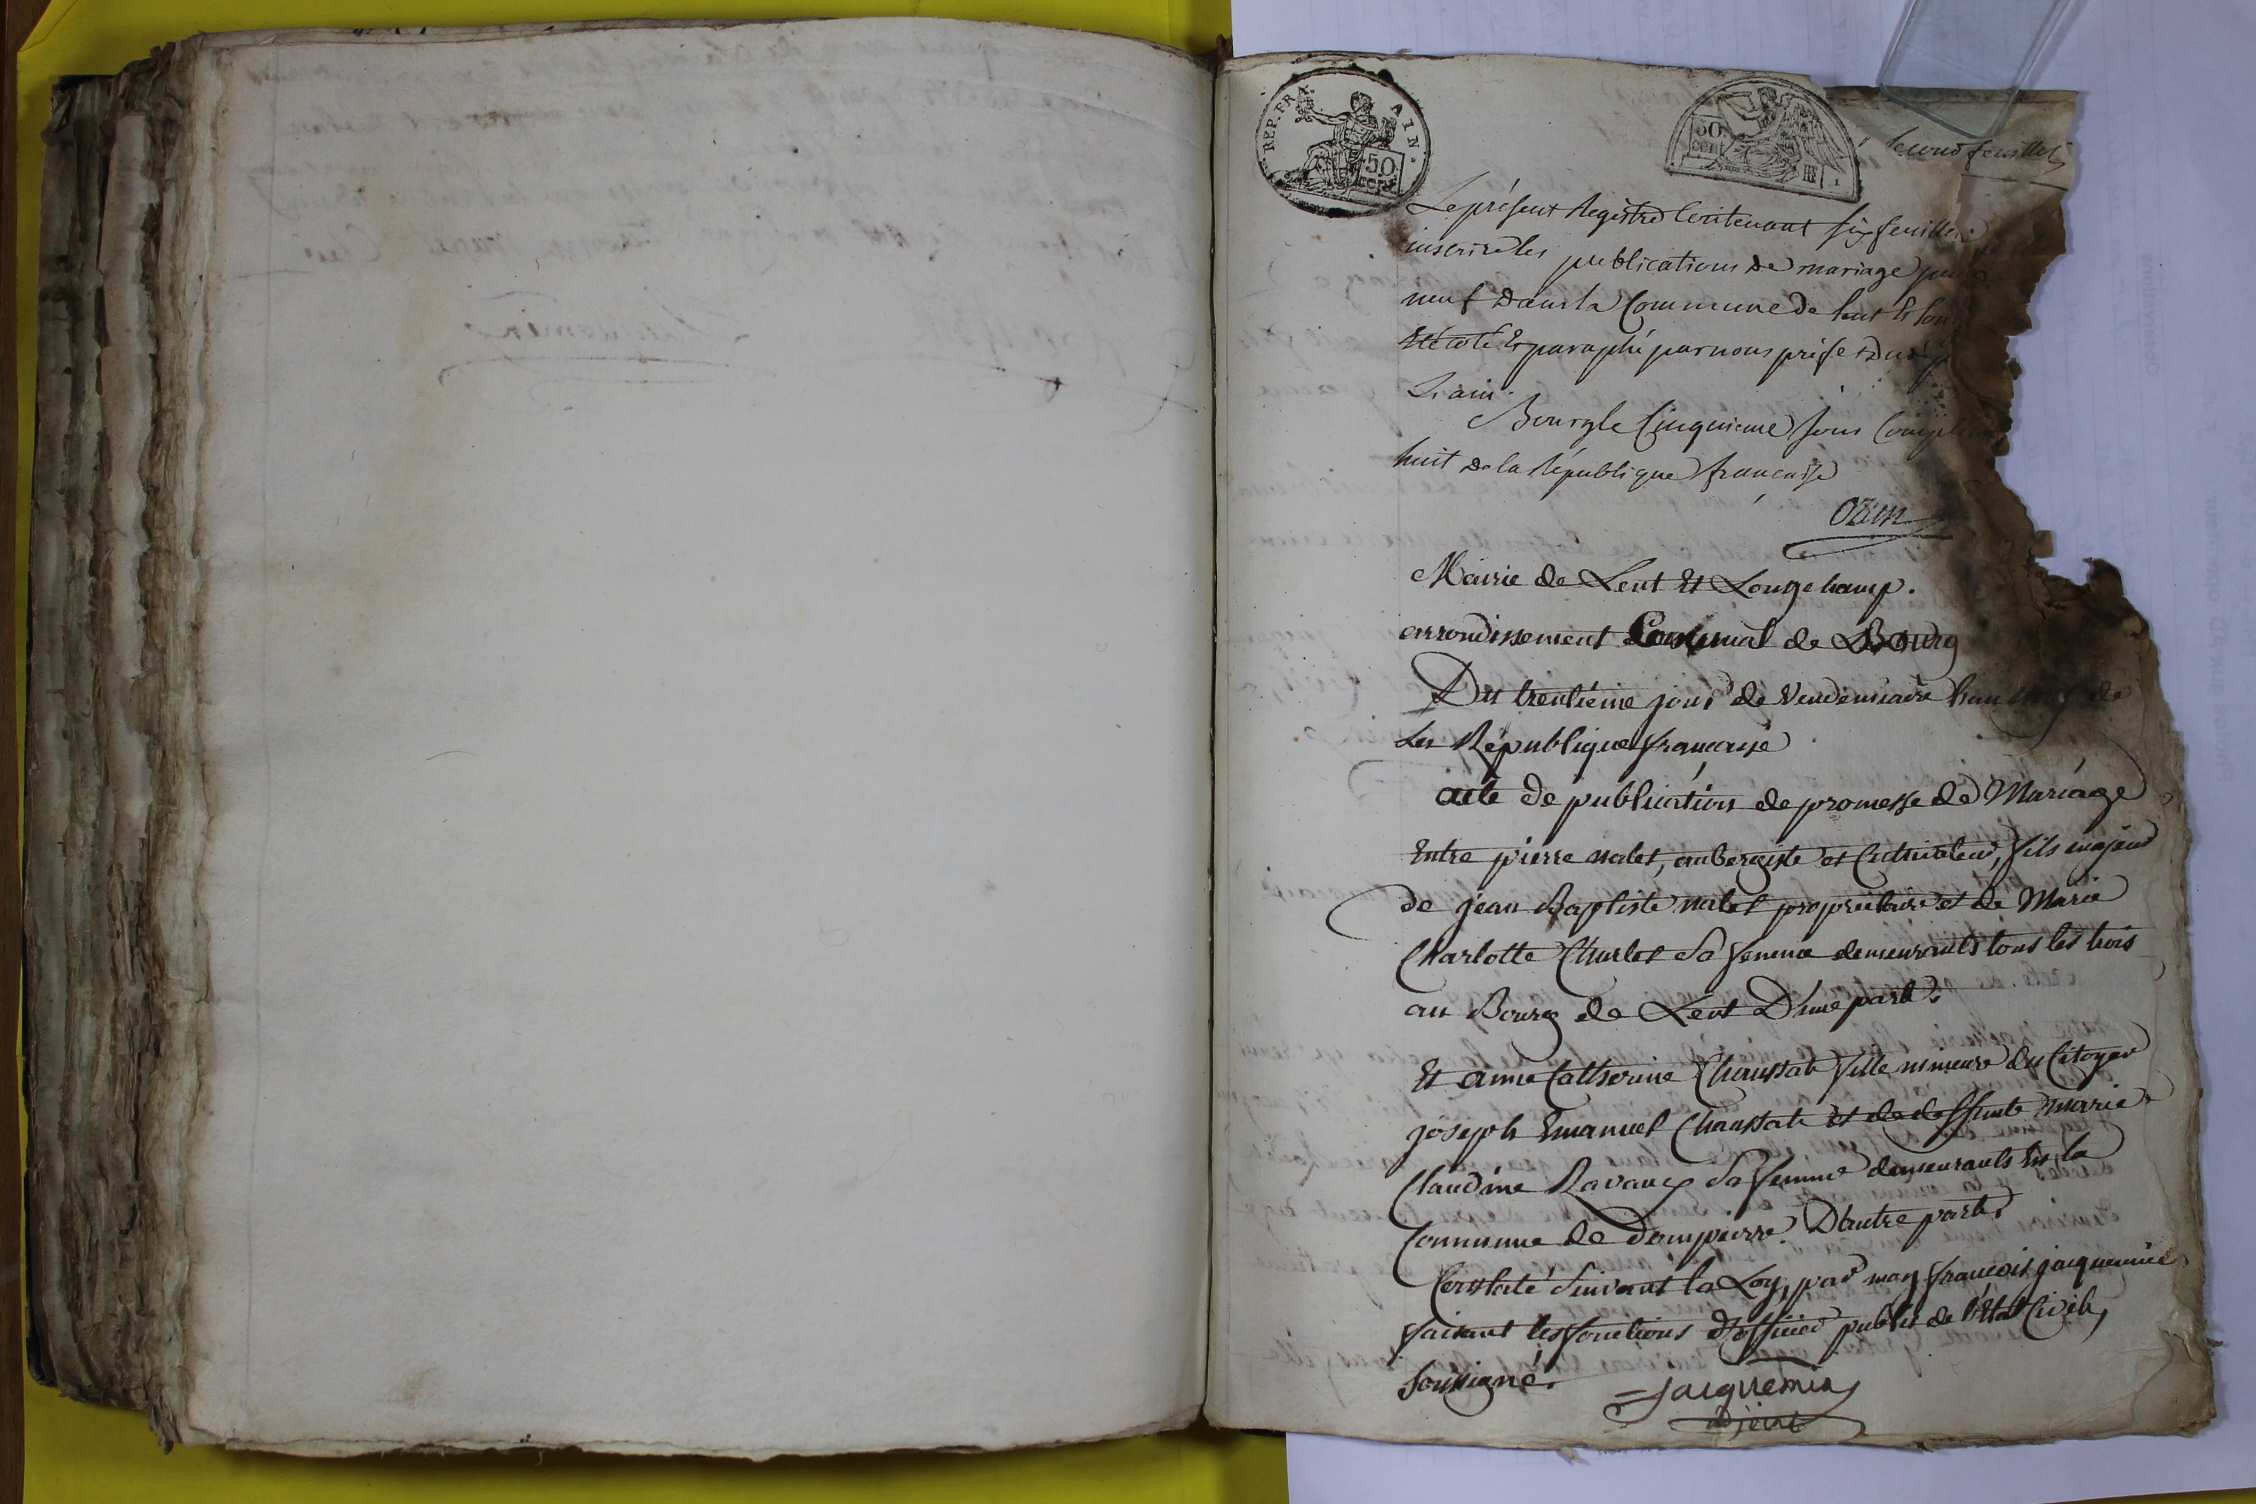 REP. FRA. AIN.
50 cent
50 cen
second feuillet
Le présent Registre Contenant six feuillets
inscrire les publications de mariage
neuf dans la Commune de Lent
Eté coté Et paraphé par nous préfet du
L'ain.
Bourg le Cinquieme Jour
huit de la République francaise
Ozun
Mairie de Lent Et Longchamp.
arrondissement Communal de Bourg
Du trentième jour de Vendemiaire l'an neuf de
La République francaise
acte de publication de promesse de Mariage
Entre pierre nalet, aubergiste et Cultivateur, fils majeur
de jean Baptiste nalet propriétaire et de Marie
Charlotte Charlet Sa femme demeurants tous les trois
au Bourg de Lent D'une part.
Et anne Catherine Chaussat fille mineure du Citoyen
joseph Emanuel Chaussat et de deffunte marie
Claudine Ravaux Sa femme demeurants En la
Commune de Dompierre. D'autre part.
Constaté Suivant la Loy, par moy francois jacquemin
faisant les fonctions d'officier public de l'état Civil,
Soussigné.
Jacquemin
adjoint